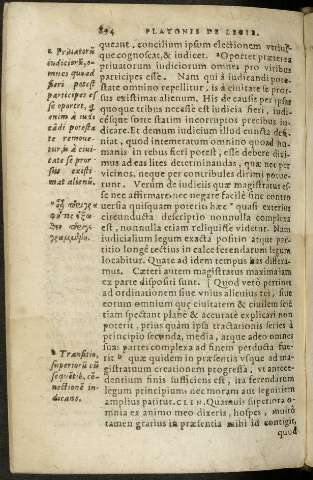 894 PLATONIS DE LEGIB.
queant, concilium ipsum electionem vtriusque
que cognoscat, & iudicet. Oportet præterea
priuatorum iudiciorum omnes pro viribus
participes esse. Nam qui à iudicandi potestate
state omnino repellitur, is à ciuitate se prorsus
sus existimat alienum. His de causis per ipsas
quoque tribus necesse est iudicia fieri, iudicésque
césque sorte statim incorruptos precibus iudicare.
dicare. Et demum iudicium illud cuncta definiat,
niat, quod intemeratum omnino quoad humanis
manis in rebus fieri potest, esse debere dicimus
mus ad eas lites determinandas, quæ nec per
vicinos, neque per contribules dirimi potuerunt.
runt. Verum de iudiciis quæ magistratus esse
se nec affirmare, nec negare facilè sine controuersia
uersia quisquam poterit: hæc quasi exterior
circunducta descriptio nonnulla complexa
est, nonnulla etiam reliquisse videtur. Nam
iudicialium legum exacta positio atque partitio
titio longè rectius in calce ferendarum legum
locabitur. Quate ad idem tempus has differamus.
mus. Cæteri autem magistratus maximam
ex parte dispositi sunt. Quod verò pertinet
ad ordinationem siue vnius alicuius rei, siue
eorum omnium quæ ciuitatem & ciuilem scientiam
tiam spectant planè & accuratè explicari non
poterit, prius quàm ipsa tractationis series à
principio secunda, media, atque adeo omnes
suas partes complexa ad finem perducta fuerit
rit: quæ quidem in præsentia vsque ad magistratuum
gistratuum creationem progressa, vt antecedentium
dentium finis sufficiens est, ita ferendarum
legum principium: nec moram aut segnitiem
amplius patitur. CLIN. Quamuis superiora omnia
mnia ex animo meo dixeris, hospes, multò
tamen gratius in præsentia mihi id contigit,
quod
Priuatorũ
iudiciorũ, omnes
mnes quoad
fieri potest
participes esse
se oportet,
enim à iudicãdi
cãdi potestate
te remouetur,
tur, is à ciuitate
tate se prorsus
sus existimat
mat alienũ.
Transitio,
superiorũ cũ
sequẽtib. connectionẽ
nectionẽ indicans.
dicans.